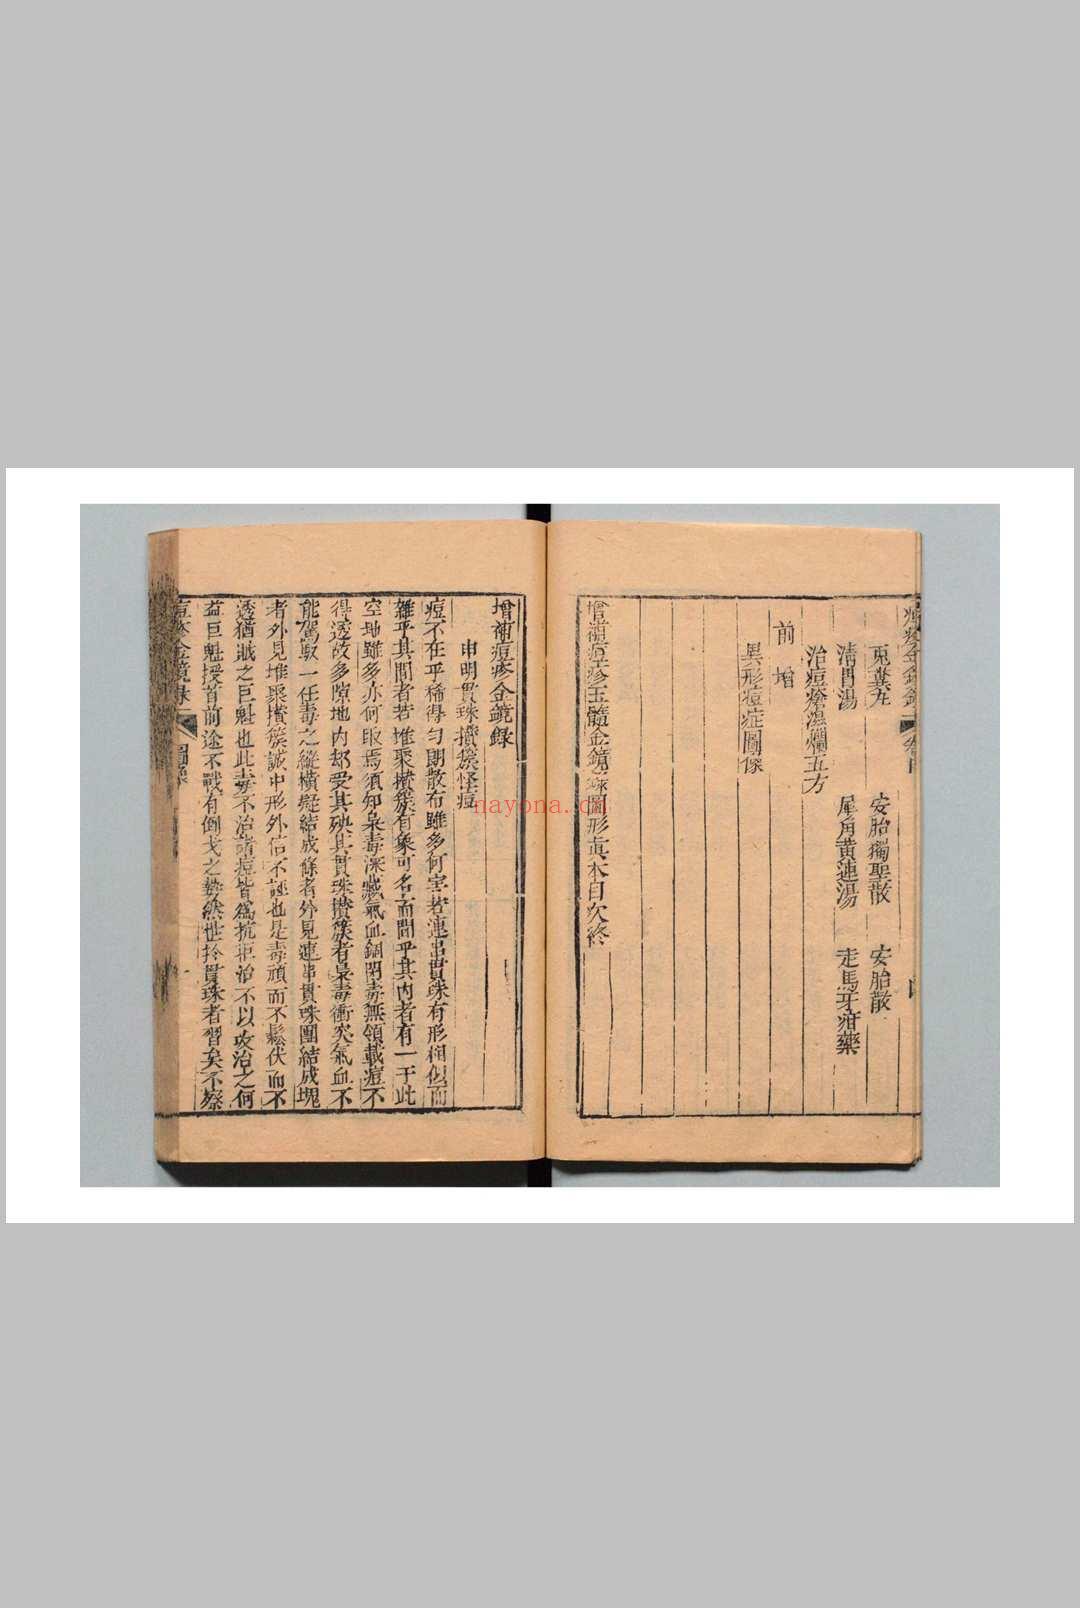 痘疹金鏡錄
兎糞丸 安胎獨聖散 安胎散
清胃湯 犀角黃連湯 走馬牙疳藥
治痘瘡濕爛五方
前增
異形痘症圖像
增補痘疹玉髓金鏡錄圖形真本目次終
增補痘疹金鏡錄
申明貫珠攢簇怪痘
痘不在乎稀得勻朗散布雖多何害若連串貫珠有形相似而
雜乎其間者若堆聚攢簇有象可名而間乎其內者有一于此
空地雖多亦何取焉須知梟毒深藏氣血錮閉毒無領載痘不
得透故多隙地內却受其殃其貫珠攢簇者梟毒衝突氣血不
能駕馭一任毒之縱橫凝結成條者外見連串貫珠團結成塊
者外見堆聚攢簇誠中形外信不誣也是毒頑而不鬆伏而不
透猶賊之巨魁也此毒不治諸痘皆為抗拒治不以攻治之何
益巨魁授首前途不戰有倒戈之勢然世於貫珠者習矣不察
痘疹金鏡錄 圖像
nayona.cn